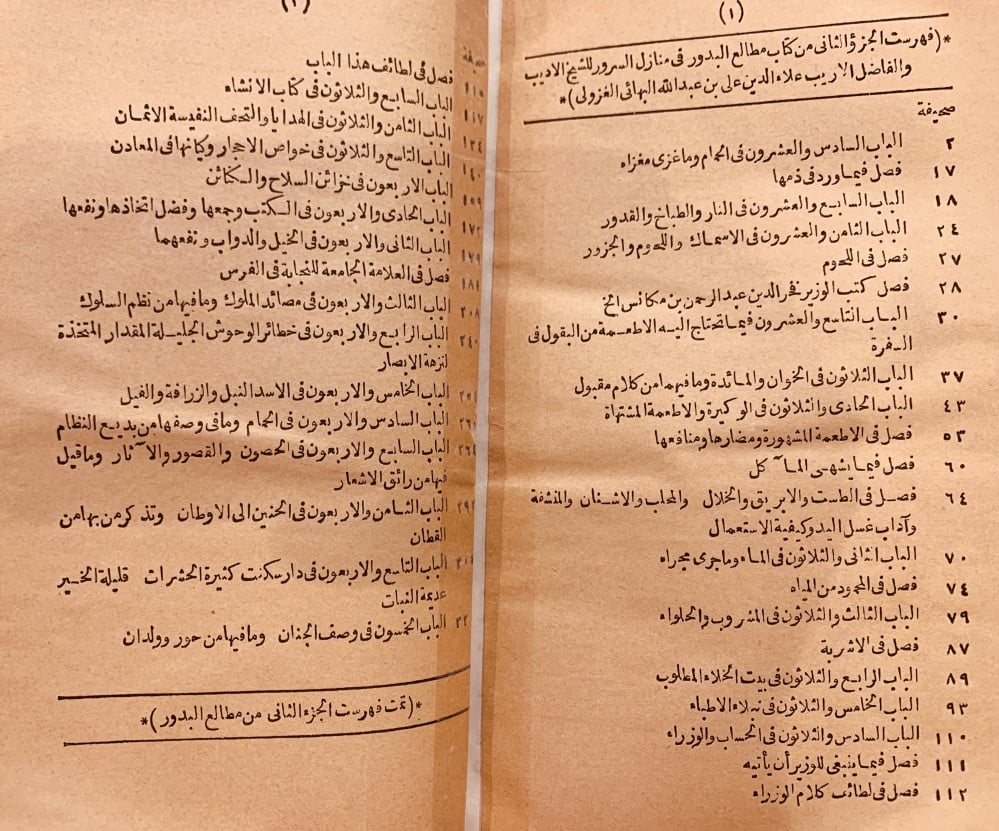 (١)
*(فهرست الجزؤ الثانى من كتاب مطالع البدور فى منازل السرور للشيخ الاديب
والفاضل الاريب علاء الدين على بن عبد الله البهائى الغزولى)*
صحيفة
٢ الباب السادس والعشرون فى الحمام وماغزى مغزاه
١٧ فصل فيما ورد فى ذمها
١٨ الباب السابع والعشرون فى النار والطباخ والقدور
٢٤ الباب الثامن والعشرون فى الاسماك واللحوم والجزور
٢٧ فصل فى اللحوم
٢٨ فصل كتب الوزير فخر الدين عبد الرحمن بن مكانس الخ
٣٠ الباب التاسع والعشرون فيما تحتاج اليه الاطعمة من البقول فى
السفرة
٣٧ الباب الثلاثون فى الخوان والمائدة ومافيهما من كلام مقبول
٤٣ الباب الحادى والثلاثون فى الوكيرة والاطعمة المشتهاة
٥٣ فصل فى الاطعمة المشهورة ومضارها ومنافعها
٦٠ فصل فيما يشهى المآكل
٦٤ فصل فى الطست والابريق والخلال والمحلب والاشنان والمنشفة
وآداب غسل اليد وكيفية الاستعمال
٧٠ الباب الثانى والثلاثون فى الماء وماجرى مجراه
٧٤ فصل فى المحمود من المياه
٧٩ الباب الثالث والثلاثون فى المشروب والحلواء
٨٧ فصل فى الاشربة
٨٩ الباب الرابع والثلاثون فى بيت الخلاء المطلوب
٩٣ الباب الخامس والثلاثون فى نبلاء الاطباء
١١٠ الباب السادس والثلاثون فى الحساب والوزراء
١١١ فصل فيما ينبغى للوزير أن يأتيه
١١٢ فصل فى لطائف كلام الوزراء
(٢)
فصل فى لطائف هذا الباب
الباب السابع والثلاثون فى كتاب الانشاء
١١٧ الباب الثامن والثلاثون فى الهدايا والتحف النفيسة الاثمان
١٣٤ الباب التاسع والثلاثون فى خواص الاحجار وكيانها فى المعادن
الباب الاربعون فى خزائن السلاح والكنائن
١٥٩ الباب الحادى والاربعون فى الكتب وجمعها وفضل اتخاذها ونفعها
١٧٢ الباب الثانى والاربعون فى الخيل والدواب ونفعهما
١٧٩ فصل فى العلامة الجامعة للنجابة فى الفرس
الباب الثالث والاربعون فى مصائد الملوك ومافيها من نظم السلوك
الباب الرابع والاربعون فى خطائر الوحوش الجليلة المقدار المتخذة
لنزهة الابصار
الباب الخامس والاربعون فى الاسد النبل والزرافة والفيل
الباب السادس والاربعون فى الحمام ومافى وصفها من بديع النظام
الباب السابع والاربعون فى الحصون والقصور والآثار وماقيل
فيها من رائق الاشعار
٢٩٢ الباب الثامن والاربعون فى الحنين الى الاوطان وتذكر من بها من
القطان
الباب التاسع والاربعون فى دار سكنت كثيرة الحشرات قليلة الخير
عديمة النبات
الباب الخمسون فى وصف الجنان ومافيها من حور وولدان
*(تمت فهرست الجزء الثانى من مطالع البدور)*